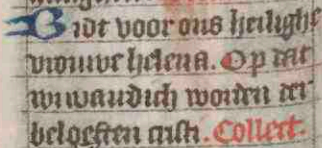 Bidt voor ons heilighe
vrouwe helena. Op dat
wi waudich worden der
beloeften cristi. Collect.